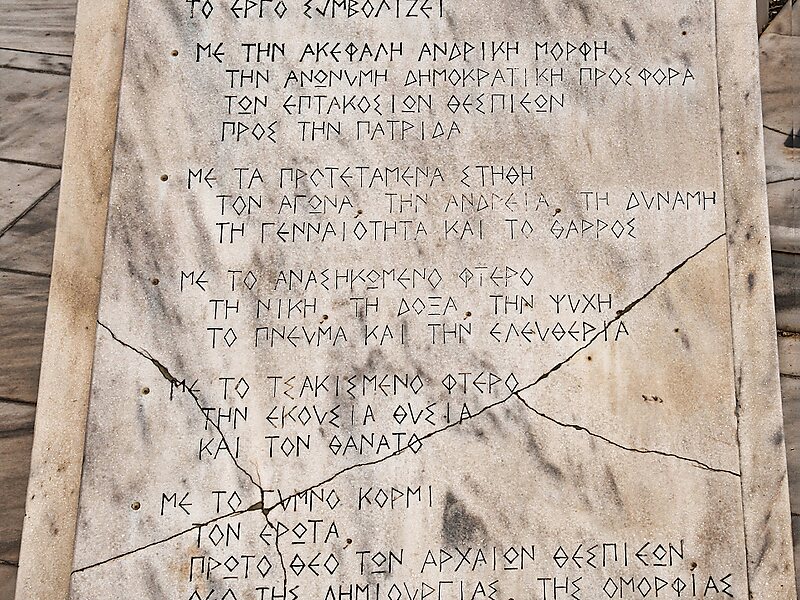 ΤΟ ΕΡΓΟ ΣΥΜΒΟΛΙΖΕΙ
ΜΕ ΤΗΝ ΑΚΕΦΑΛΗ ΑΝΔΡΙΚΗ ΜΟΡΦΗ
ΤΗΝ ΑΝΩΝΥΜΗ ΔΗΜΟΚΡΑΤΙΚΗ ΠΡΟΣΦΟΡΑ
ΤΩΝ ΕΠΤΑΚΟΣΙΩΝ ΘΕΣΠΙΕΩΝ
ΠΡΟΣ ΤΗΝ ΠΑΤΡΙΔΑ
ΜΕ ΤΑ ΠΡΟΤΕΤΑΜΕΝΑ ΣΤΗΘΗ
ΤΟΝ ΑΓΩΝΑ, ΤΗΝ ΑΝΔΡΕΙΑ, ΤΗ ΔΥΝΑΜΗ
ΤΗ ΓΕΝΝΑΙΟΤΗΤΑ ΚΑΙ ΤΟ ΘΑΡΡΟΣ
ΜΕ ΤΟ ΑΝΑΣΗΚΩΜΕΝΟ ΦΤΕΡΟ
ΤΗ ΝΙΚΗ, ΤΗ ΔΟΞΑ, ΤΗΝ ΨΥΧΗ,
ΤΟ ΠΝΕΥΜΑ ΚΑΙ ΤΗΝ ΕΛΕΥΘΕΡΙΑ
ΜΕ ΤΟ ΤΣΑΚΙΣΜΕΝΟ ΦΤΕΡΟ
ΤΗΝ ΕΚΟΥΣΙΑ ΘΥΣΙΑ
ΚΑΙ ΤΟΝ ΘΑΝΑΤΟ
ΜΕ ΤΟ ΓΥΜΝΟ ΚΟΡΜΙ
ΤΟΝ ΕΡΩΤΑ,
ΠΡΩΤΟ ΘΕΟ ΤΩΝ ΑΡΧΑΙΩΝ ΘΕΣΠΙΕΩΝ,
ΘΕΟ ΤΗΣ ΔΗΜΙΟΥΡΓΙΑΣ, ΤΗΣ ΟΜΟΡΦΙΑΣ